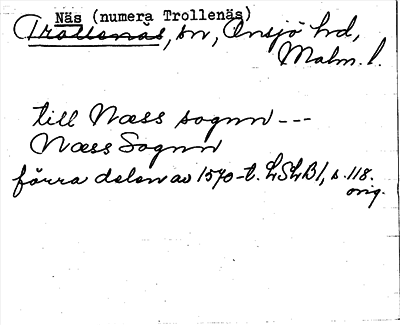 Näs (numera Trollenäs)
Trollenäs, sn, Onsjö hd,
Malm. l.
till Næss sognn ---
Næss Sognn
förra delen av 1570-t. LSLB 1, s. 118.
orig.